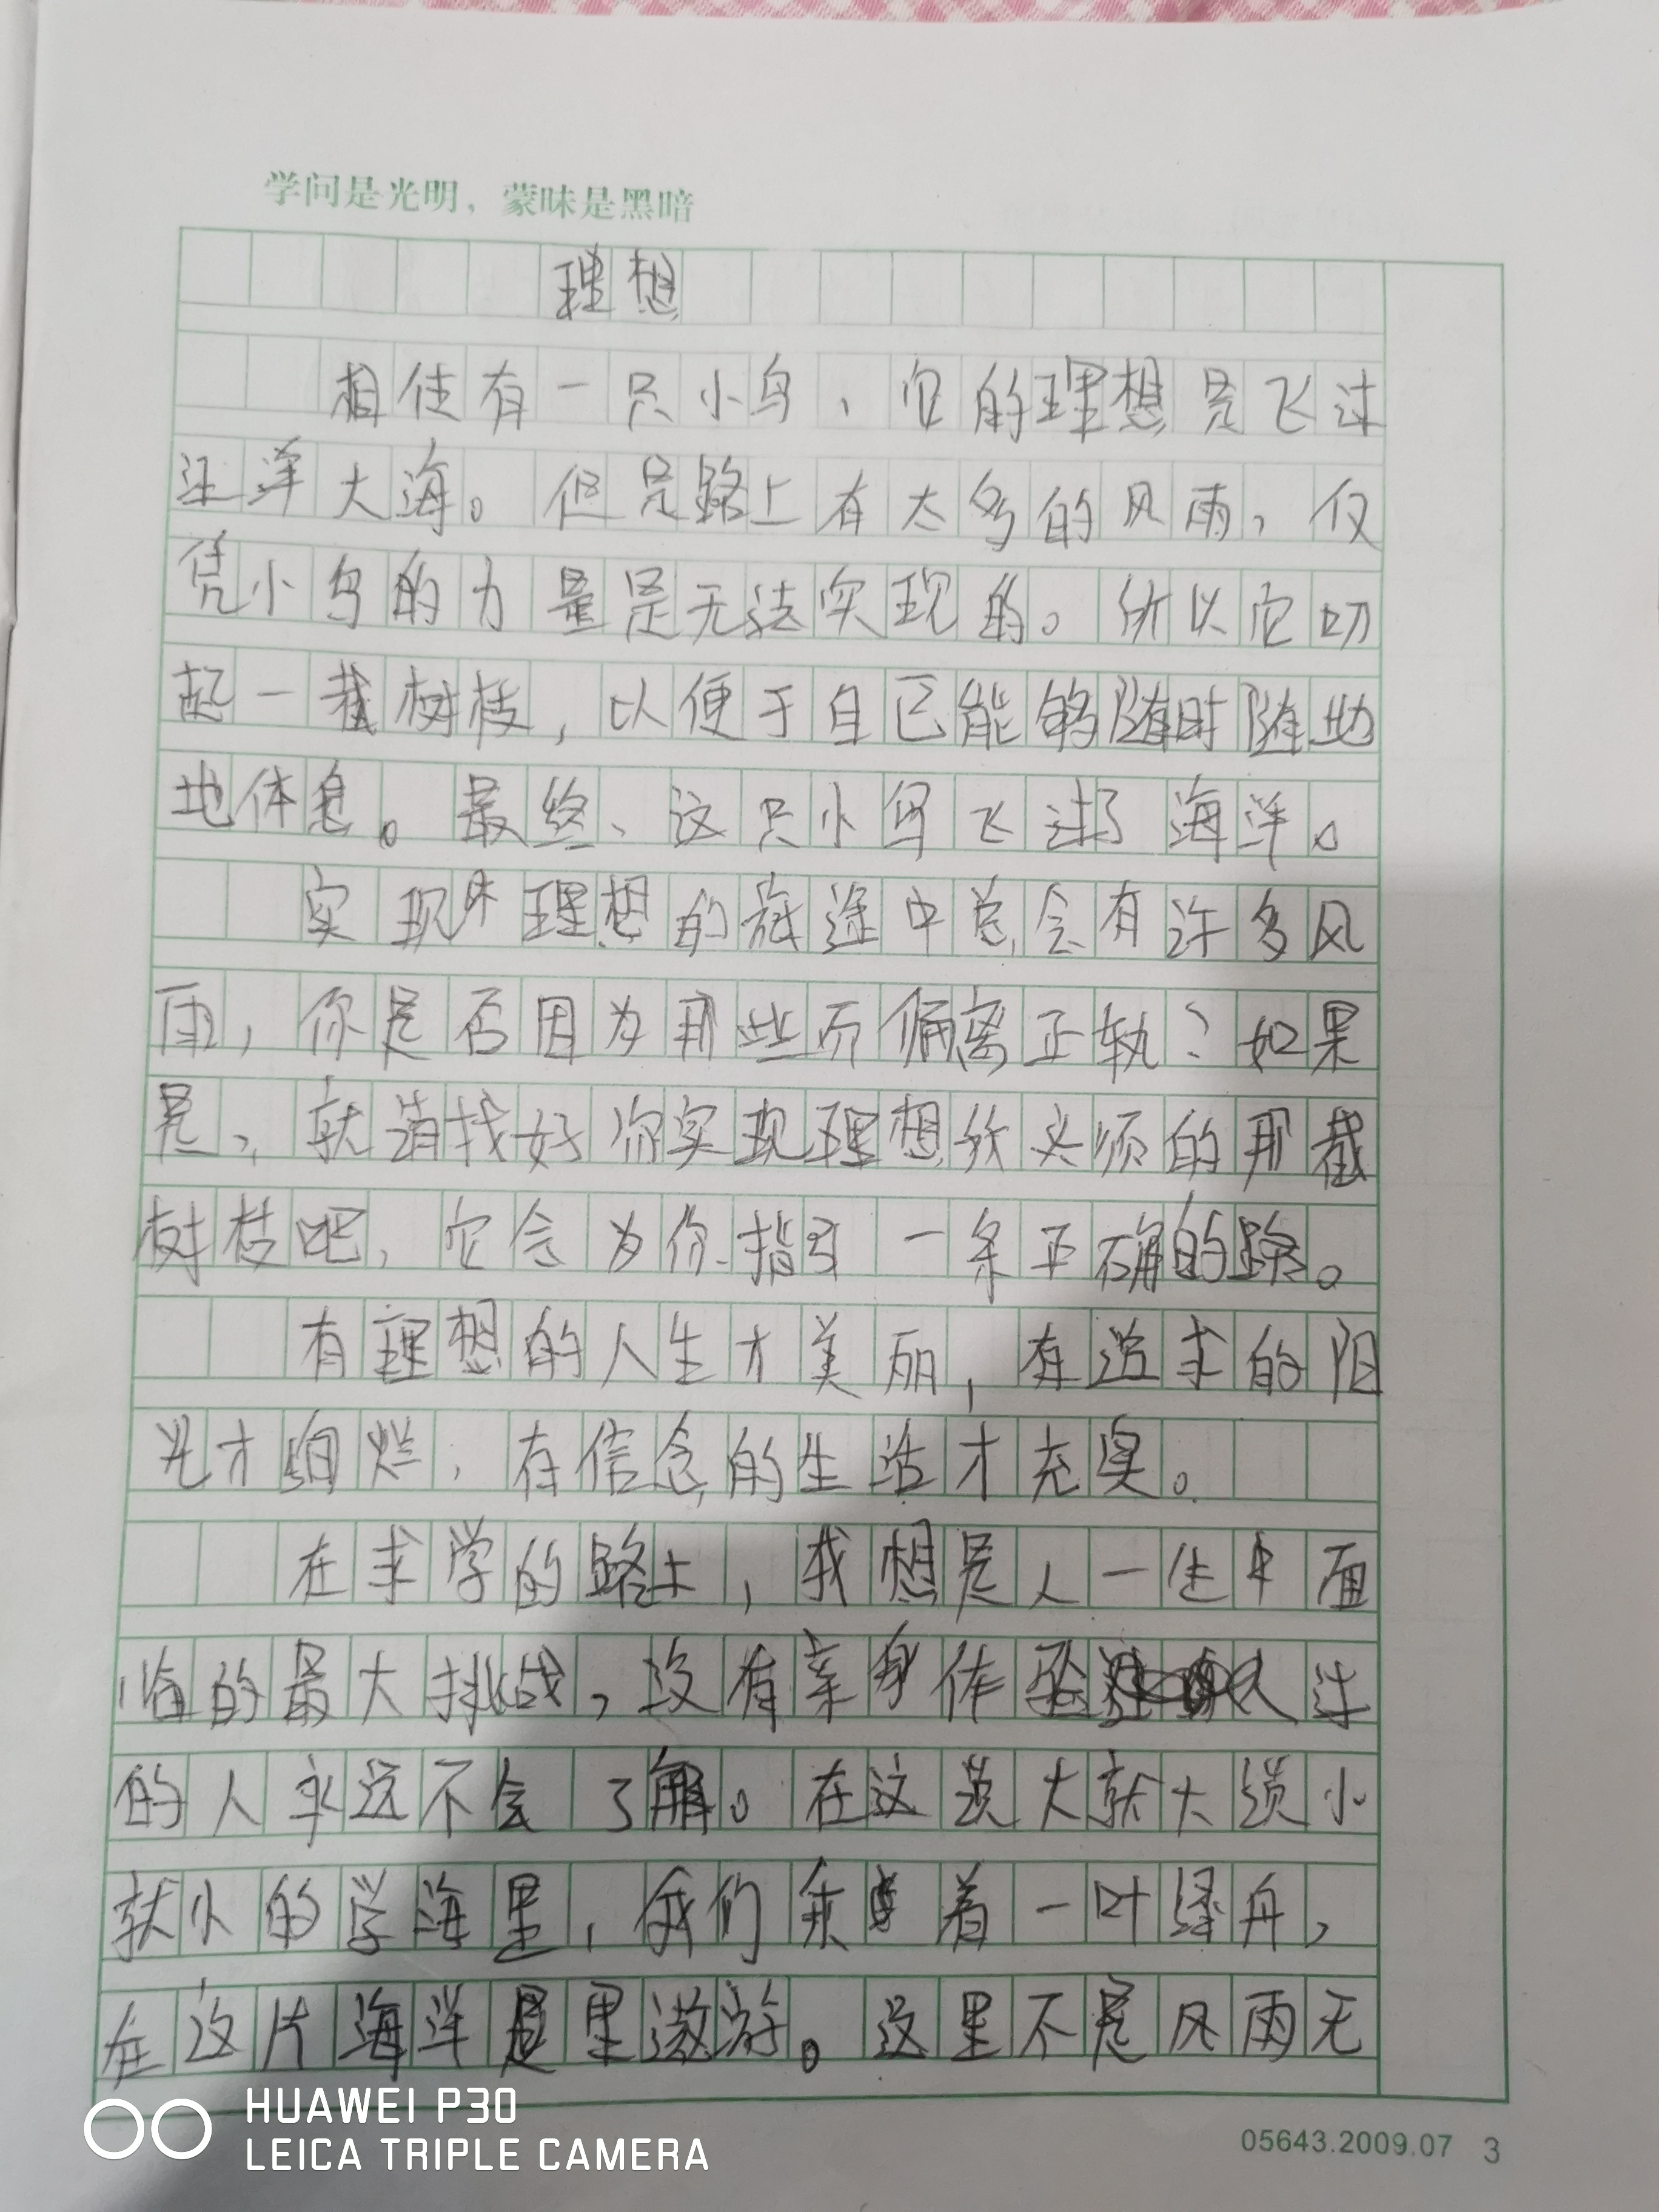 学问是光明，蒙昧是黑暗
理想
相传有一只小鸟，它的理想是飞过
汪洋大海。但是路上有太多的风雨，仅
凭小鸟的力量是无法实现的。所以它叨
起一截树枝，以便于自己能够随时随地
地休息。最终、这只小鸟飞过了海洋。
实现 理想的旅途中总会有许多风
雨，你是否因为那些而偏离正轨？如果
是，就请找好你实现理想 必须的那截
树枝吧，它会为你指引一条正确的路。
有理想的人生才美丽，有追求的阳
光才绚烂，有信念的生活才充实。
在求学的路上，我想是人一生中面
临的最大挑战，没有亲身体验 过
的人永远不会了解。在这说大就大说小
就小的学海里，我们乘着一叶 舟，
在这片海洋里遨游。这里不是风雨无
HUAWEI P30
LEICA TRIPLE CAMERA
05643.2009.07 3